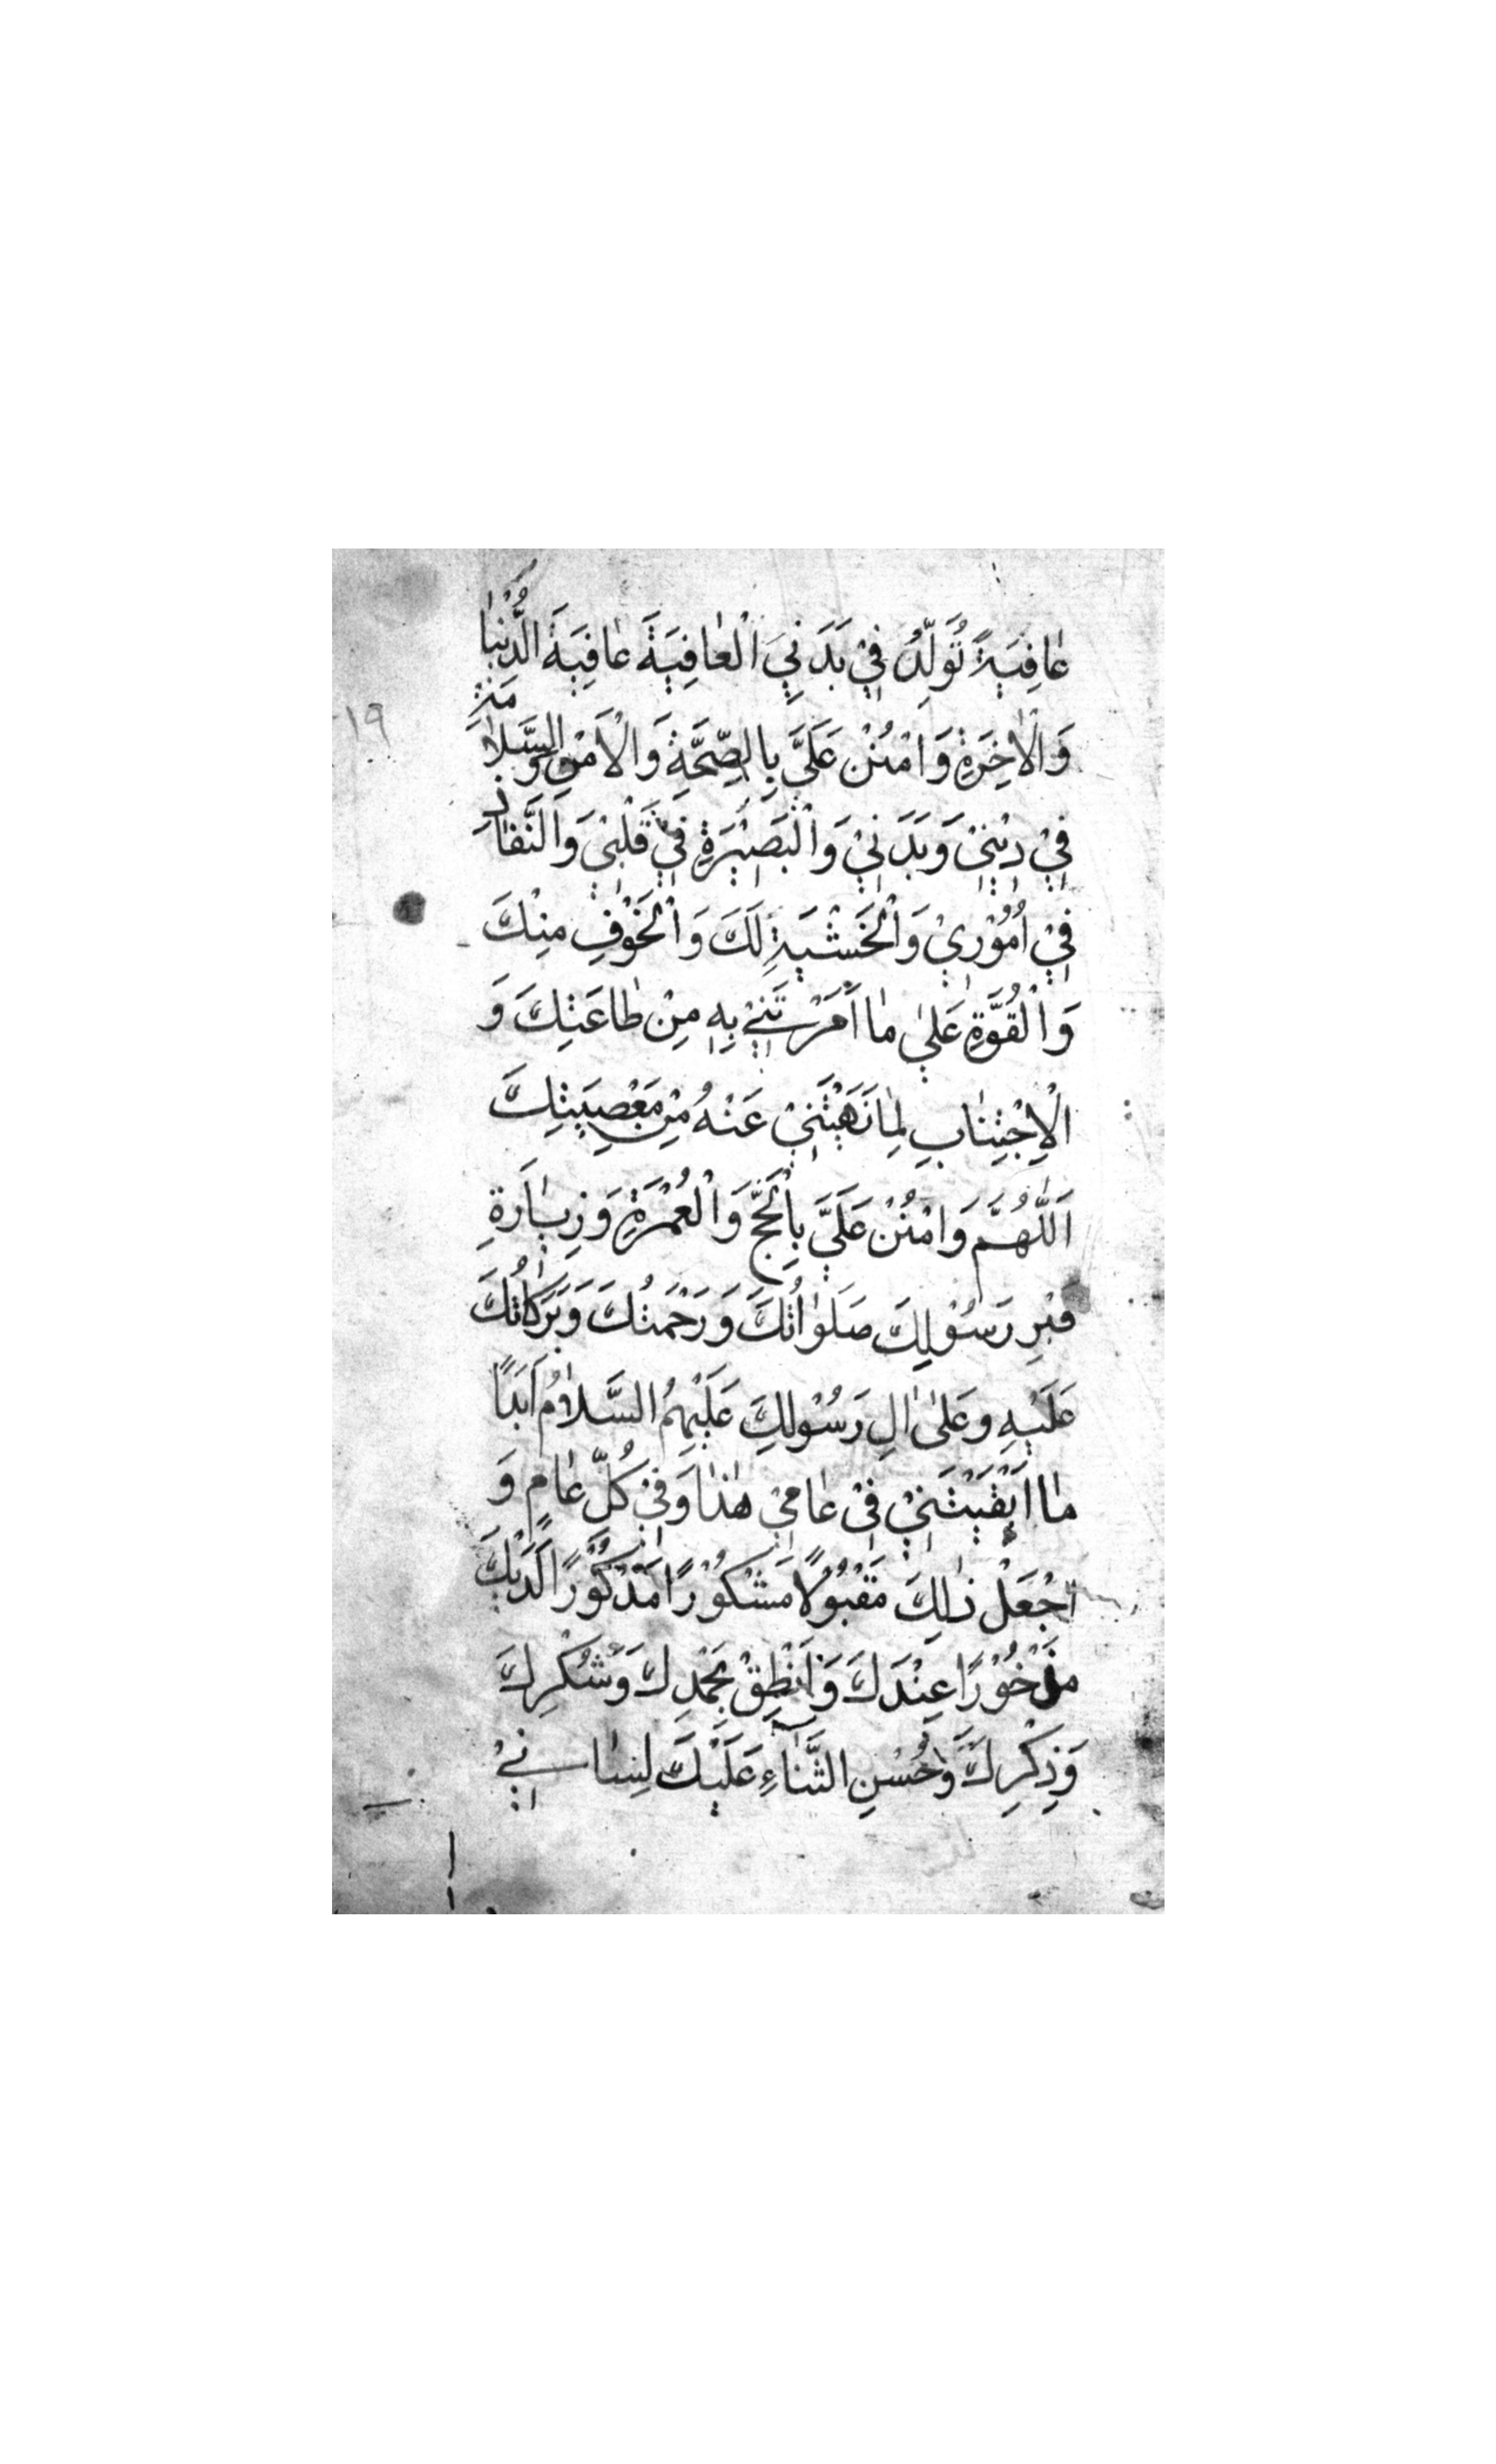 عَافِيَةً تُوَلِّدُ فِيْ بَدَنِيَ الْعَافِيَةَ عَافِيَةَ الدُّنْيَا
وَالْاٰخِرَةِ وَامْنُنْ عَلَيَّ بِالصِّحَّةِ وَالْاَمْنِ وَالسَّلَامَةِ
١٩
فِيْ دِيْنِيْ وَبَدَنِيْ وَالْبَصِيْرَةِ فِيْ قَلْبِيْ وَالنَّفَاذِ
فِيْ اُمُوْرِيْ وَالْخَشْيَةِ لَكَ وَالْخَوْفِ مِنْكَ
وَالْقُوَّةِ عَلٰي مَا اَمَرْتَنِيْ بِهِ مِنْ طَاعَتِكَ وَ
الْاِجْتِنَابِ لِمَا نَهَيْتَنِيْ عَنْهُ مِنْ مَعْصِيَتِكَ
اَللّٰهُمَّ وَامْنُنْ عَلَيَّ بِالْحَجِّ وَالْعُمْرَةِ وَزِيَارَةِ
قَبْرِ رَسُوْلِكَ صَلَوَاتُكَ وَرَحْمَتُكَ وَبَرَكَاتُكَ
عَلَيْهِ وَعَلٰى اٰلِ رَسُوْلِكَ عَلَيْهِمُ السَّلَامُ اَبَدًا
مَا اَبْقَيْتَنِيْ فِيْ عَامِيْ هٰذَا وَفِيْ كُلِّ عَامٍ وَ
اجْعَلْ ذٰلِكَ مَقْبُوْلًا مَشْكُوْرًا مَذْكُوْرًا لَدَيْكَ
مَذْخُوْرًا عِنْدَكَ وَاَنْطِقْ بِحَمْدِكَ وَشُكْرِكَ
وَذِكْرِكَ وَحُسْنِ الثَّنَاءِ عَلَيْكَ لِسَانِيْ